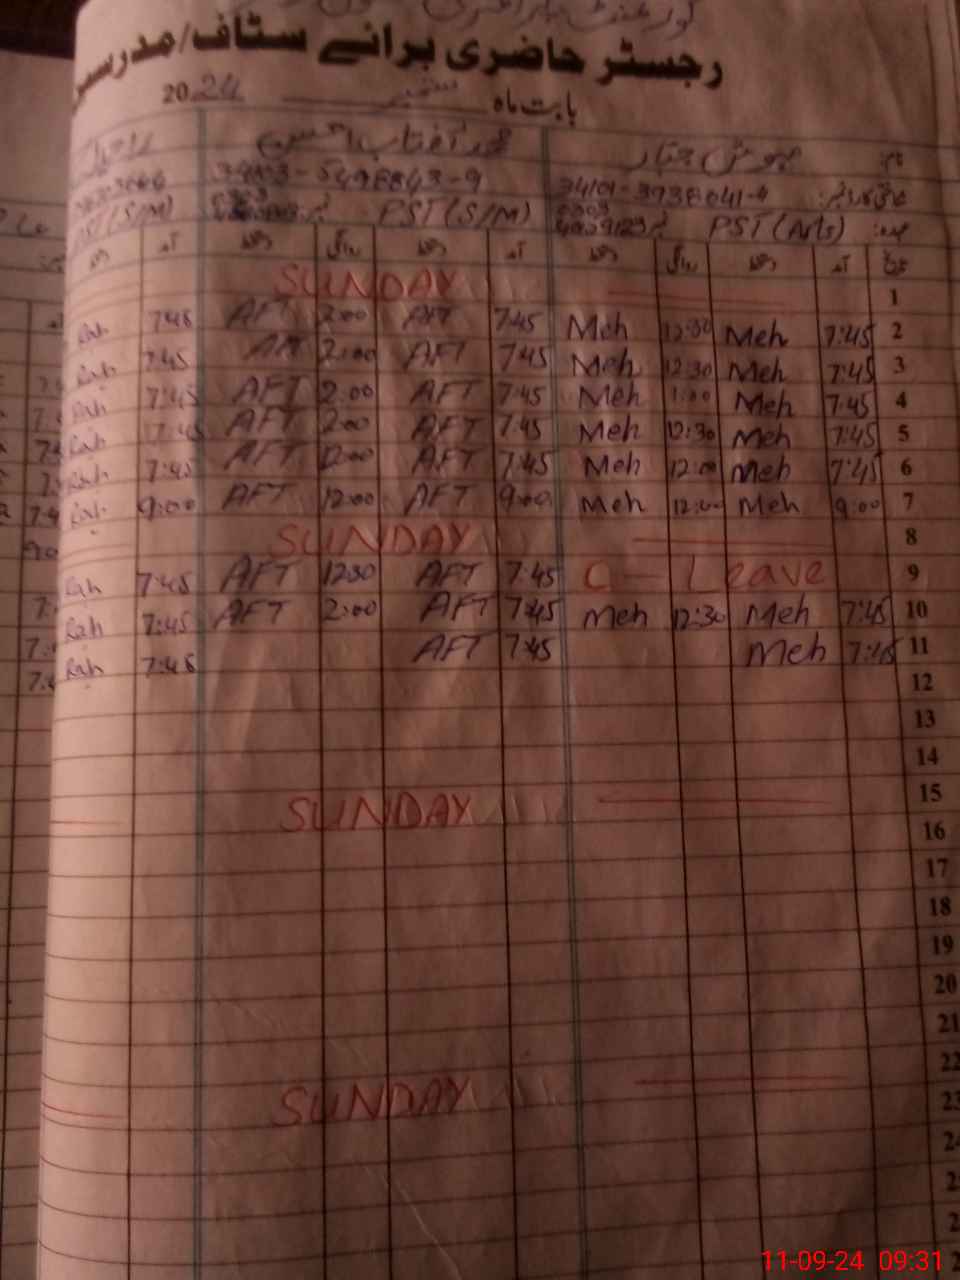 رجسٹر حاضری برائے سٹاف/مدرسین
بابت ماہ ستمبر 2024
نام:
34101-3738041-4
34103-5498843-9
عہدہ: PST (Arts)
PST (S/M)
PST (S/M)
تاریخ آمد دستخط روانگی دستخط آمد دستخط روانگی دستخط آمد دستخط
1 SUNDAY
2 7:45 Meh 12:30 Meh 7:45 AFT 2:00 AFT 7:45 Rah
3 7:45 Meh 12:30 Meh 7:45 AFT 2:00 AFT 7:45 Rah
4 7:45 Meh 1:00 Meh 7:45 AFT 2:00 AFT 7:45 Rah
5 7:45 Meh 12:30 Meh 7:45 AFT 2:00 AFT 7:45 Rah
6 7:45 Meh 12:00 Meh 7:45 AFT 12:00 AFT 7:45 Rah
7 9:00 Meh 12:00 Meh 9:00 AFT 12:00 AFT 9:00 Rah
8 SUNDAY
9 C - Leave 7:45 AFT 12:30 AFT 7:45 Rah
10 7:45 Meh 12:30 Meh 7:45 AFT 2:00 AFT 7:45 Rah
11 7:45 Meh 7:45 AFT 7:45 Rah
12
13
14
15 SUNDAY
16
17
18
19
20
21
22 SUNDAY
23
11-09-24 09:31